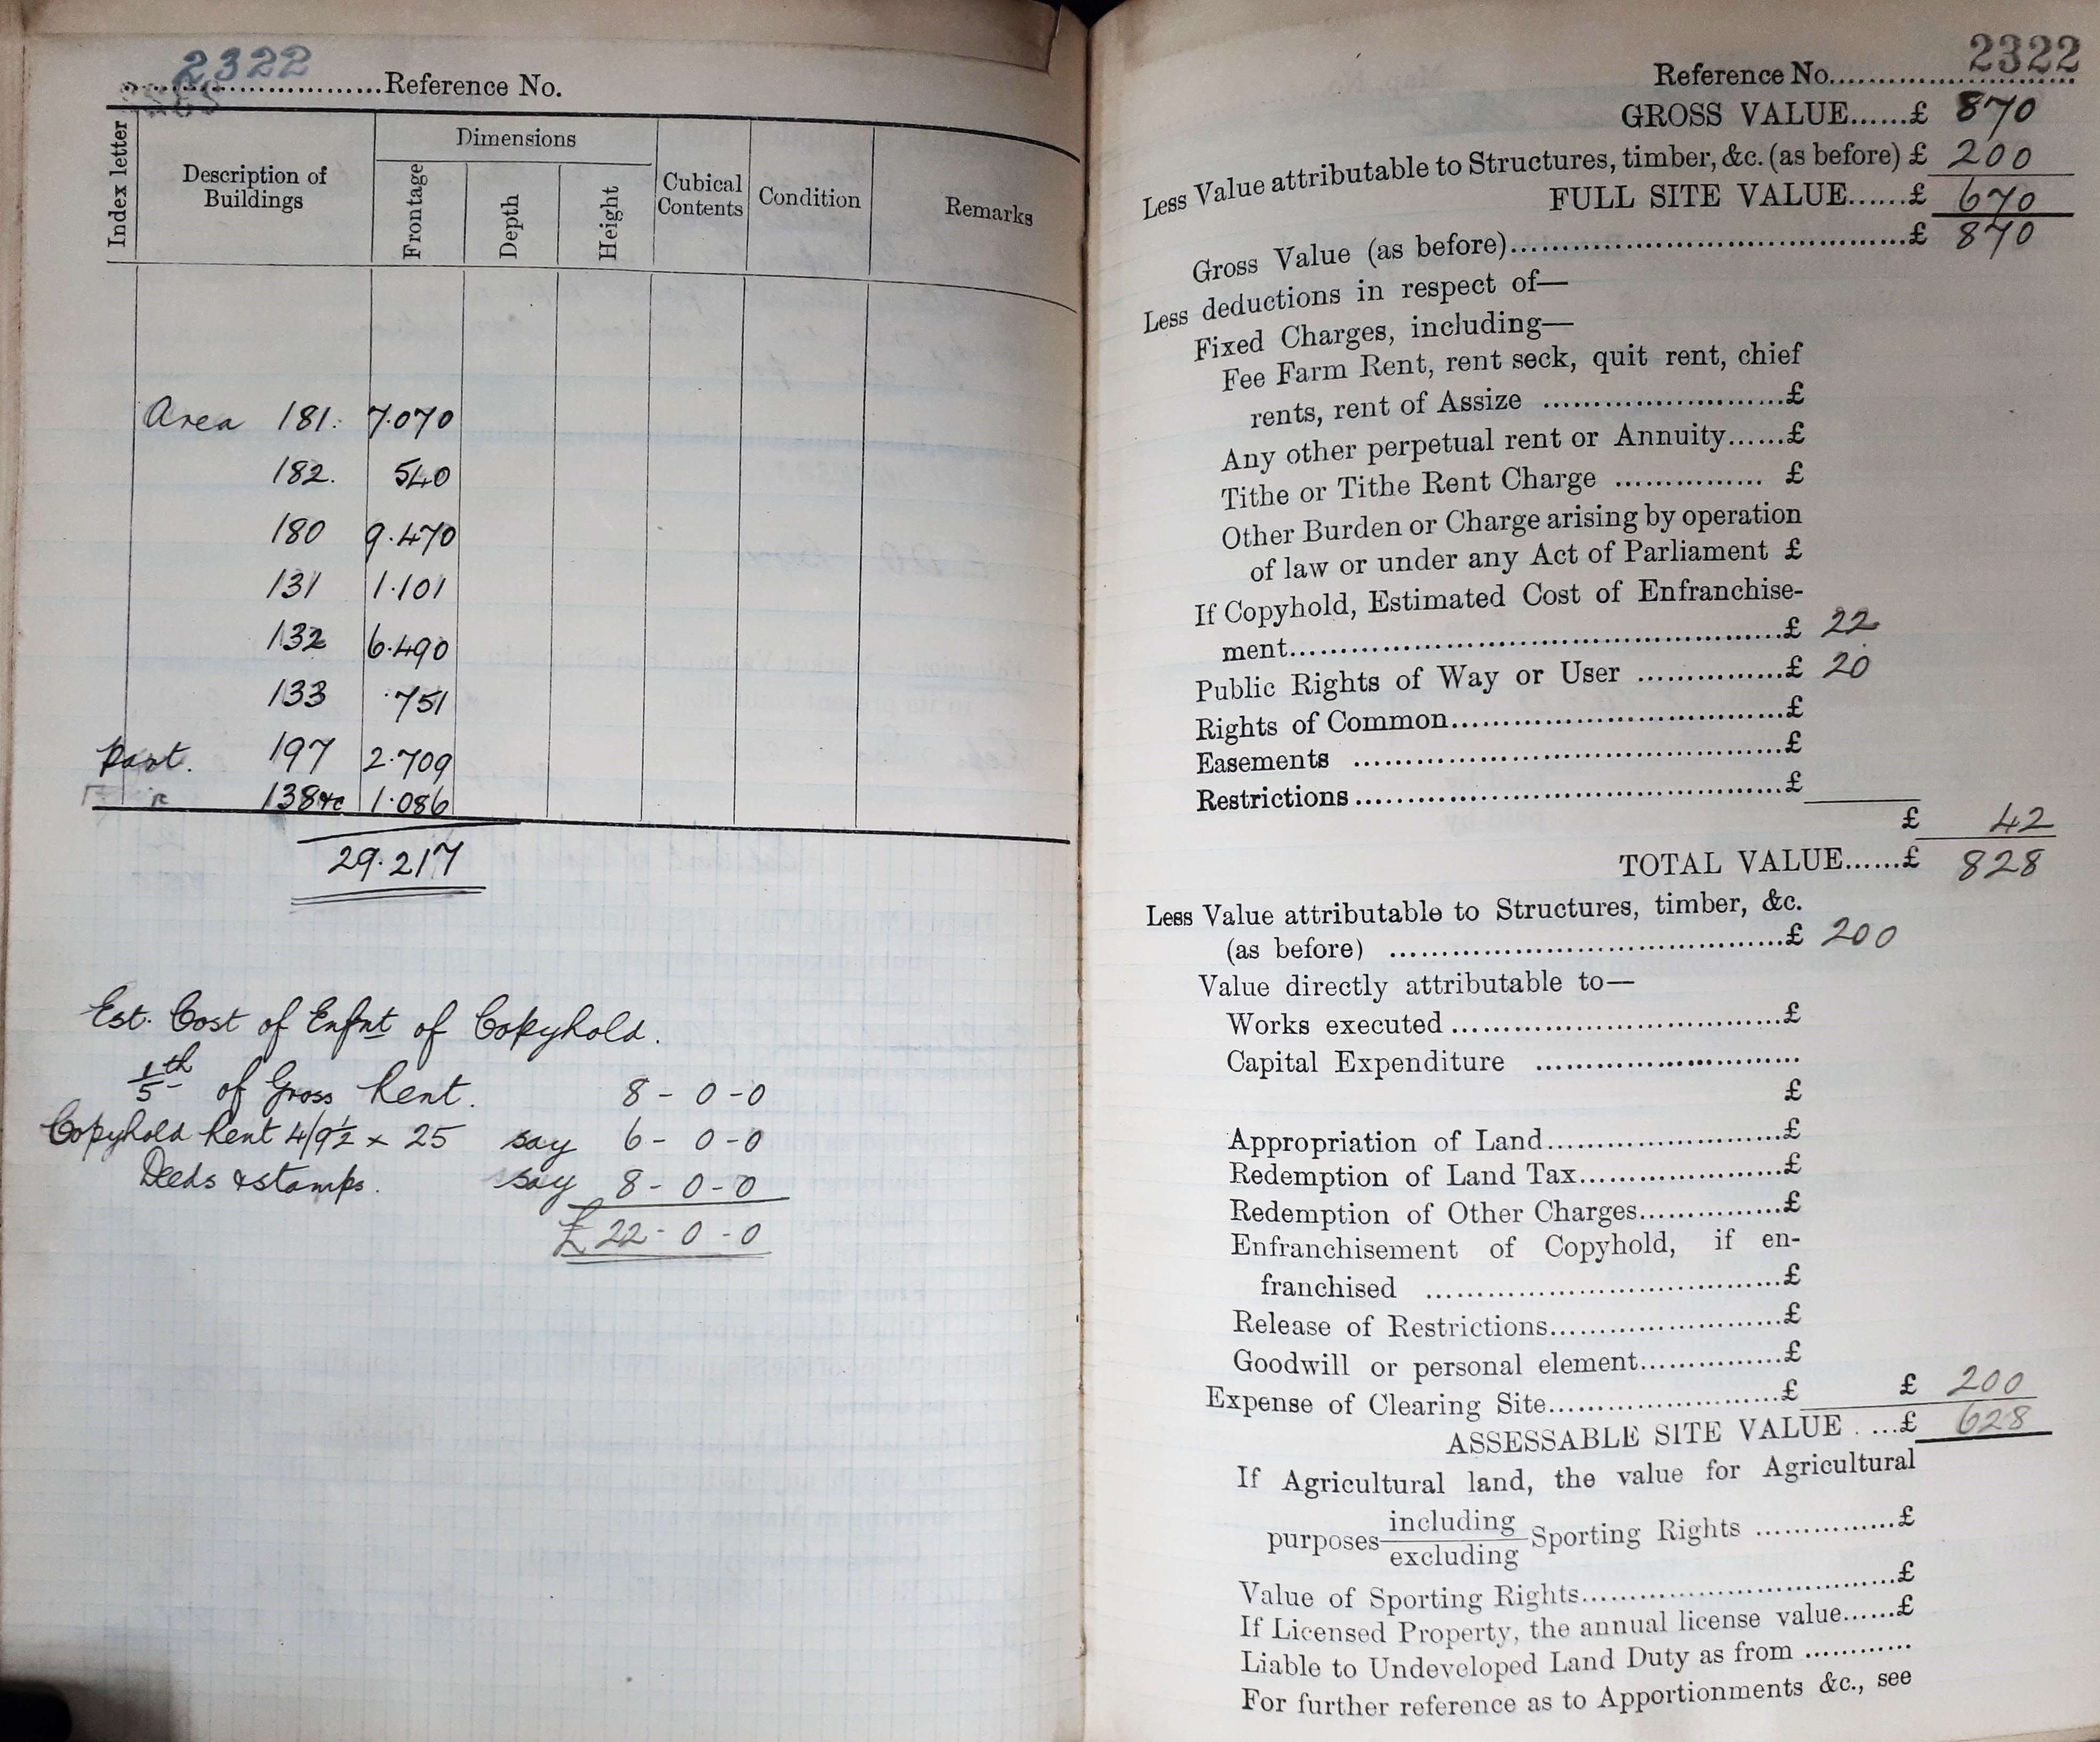 2322
Reference No.
Index letter
Description of Buildings
Dimensions
Frontage
Depth
Height
Cubical Contents
Condition
Remarks
Area 181. 7.070
182. 540
180 9.470
131 1.101
132 6.490
133 .751
Part. 197 2.709
138 &c 1.086
29.217
Est. Cost of Enfnt of Copyhold.
1/5th of Gross Rent. 8 - 0 - 0
Copyhold Rent 4/9½ × 25 say 6 - 0 - 0
Deeds & stamps. say 8 - 0 - 0
£22 - 0 - 0
Reference No. 2322
GROSS VALUE......£ 870
Less Value attributable to Structures, timber, &c. (as before) £ 200
FULL SITE VALUE......£ 670
Gross Value (as before)......£ 870
Less deductions in respect of—
Fixed Charges, including—
Fee Farm Rent, rent seck, quit rent, chief
rents, rent of Assize ......£
Any other perpetual rent or Annuity......£
Tithe or Tithe Rent Charge ...... £
Other Burden or Charge arising by operation
of law or under any Act of Parliament £
If Copyhold, Estimated Cost of Enfranchise-
ment......£ 22
Public Rights of Way or User ......£ 20
Rights of Common......£
Easements ......£
Restrictions......£
£ 42
TOTAL VALUE......£ 828
Less Value attributable to Structures, timber, &c.
(as before) ......£ 200
Value directly attributable to—
Works executed......£
Capital Expenditure ......
£
Appropriation of Land......£
Redemption of Land Tax......£
Redemption of Other Charges......£
Enfranchisement of Copyhold, if en-
franchised ......£
Release of Restrictions......£
Goodwill or personal element......£
Expense of Clearing Site......£ £ 200
ASSESSABLE SITE VALUE ....£ 628
If Agricultural land, the value for Agricultural
purposes including/excluding Sporting Rights ......£
Value of Sporting Rights......£
If Licensed Property, the annual license value......£
Liable to Undeveloped Land Duty as from ......
For further reference as to Apportionments &c., see